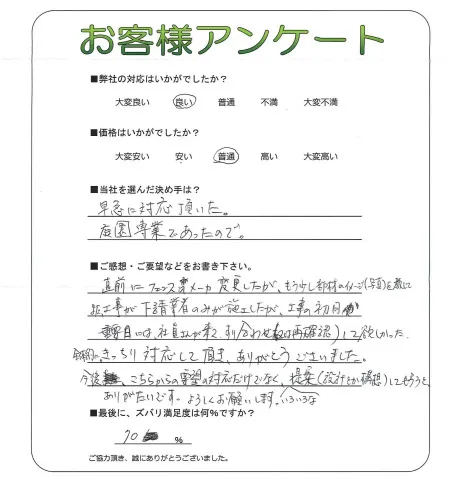 お客様アンケート
■弊社の対応はいかがでしたか?
大変良い 良い 普通 不満 大変不満
■価格はいかがでしたか?
大変安い 安い 普通 高い 大変高い
■当社を選んだ決め手は?
早急に対応頂いた。
庭園専業であったので。
■ご感想・ご要望などをお書き下さい。
直前にフェンスメーカ変更したが、もう少し部材のイメージ(写真)を
工事が下請業者のみが施工したが、工事の初日
には、社員さんが来て、打合わせ(又は再確認)して欲しかった。
きっちり対応して頂き、ありがとうございました。
今後、こちらからの要望の対応だけでなく、提案(設計とか構想)してもらうと、
ありがたいです。よろしくお願いします。いろいろな
■最後に、ズバリ満足度は何%ですか?
70 %
ご協力頂き、誠にありがとうございました。